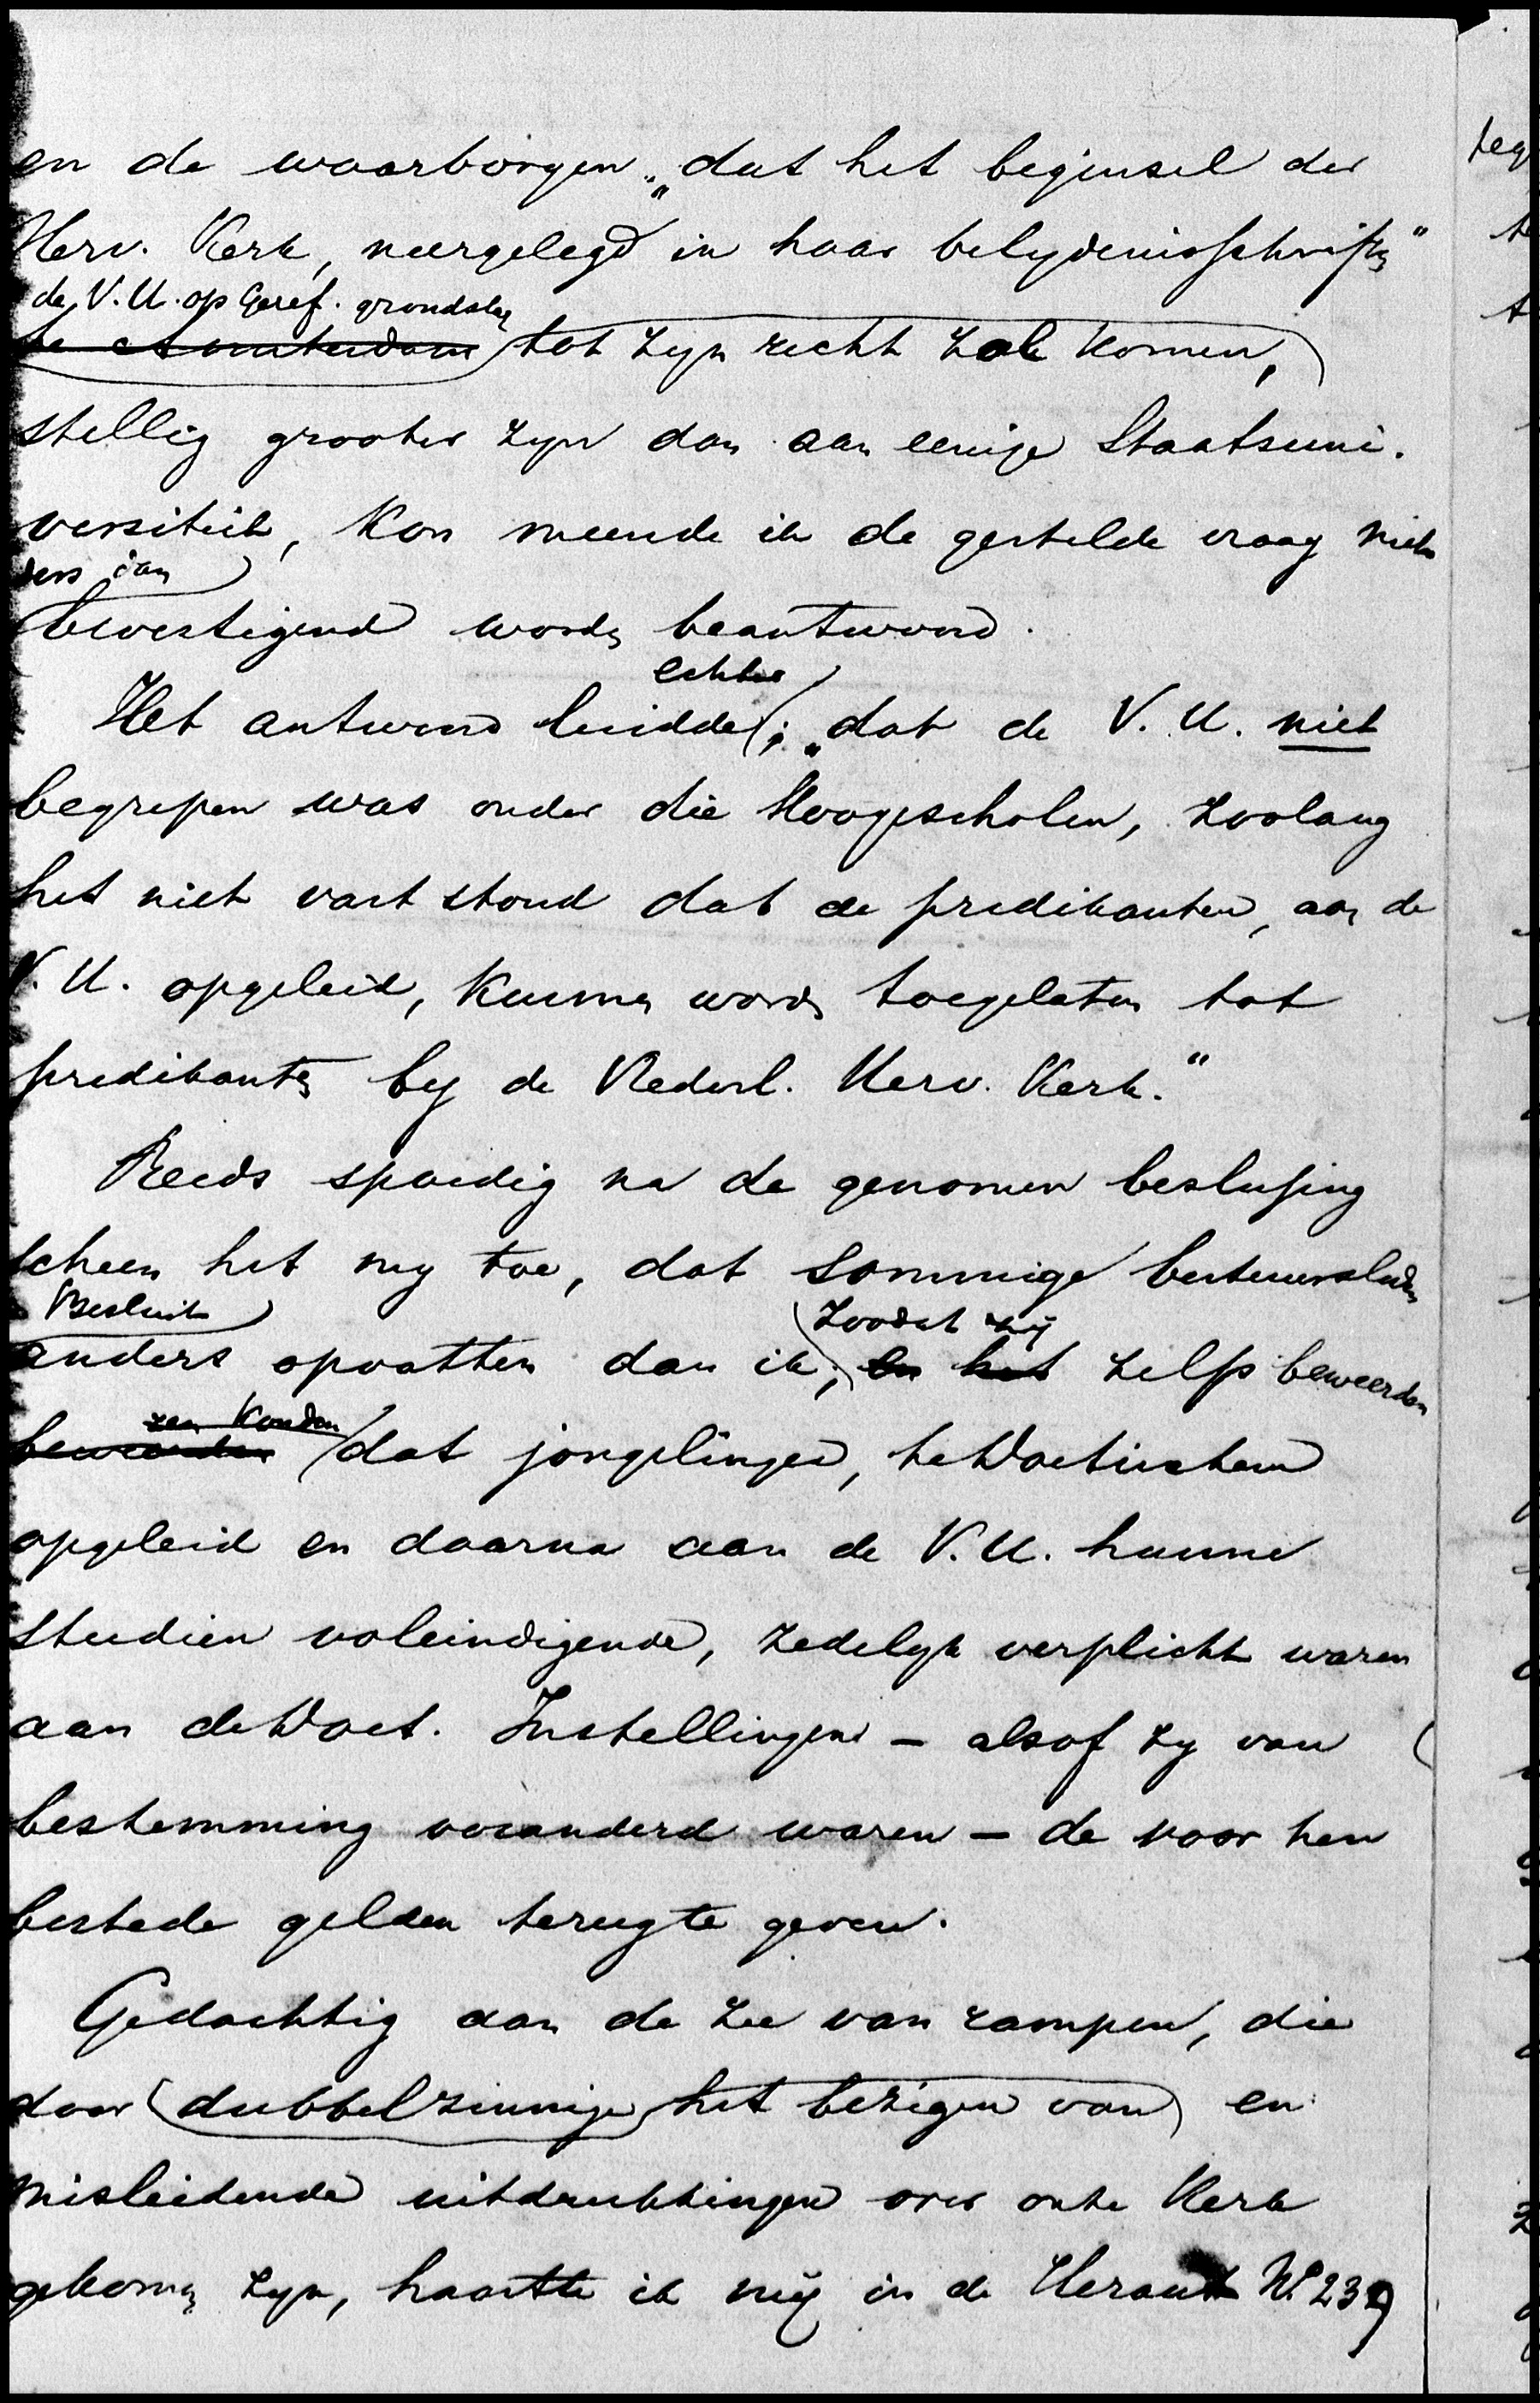 en de waarborgen „dat het beginsel der
Herv. Kerk, neergelegd in haar belydenisschriften"
de V. U. op Geref. grondslag
te Amsterdam tot zyn recht zal komen,
stellig grooter zyn dan aan eenige Staatsuni-
versiteit, kon meende ik de gestelde vraag niet
ders dan
bevestigend worden beantwoord.
echter
Het antwoord luidde; „dat de V. U. niet
begrepen was onder die Hoogescholen, zoolang
het niet vast stond dat de predikanten, aan de
V. U. opgeleid, kunnen worden toegelaten tot
predikanten by de Nederl. Herv. Kerk."
Reeds spoedig na de genomen beslissing
scheen het my toe, dat sommige bestuursleden
Besluit
zoodat zij
anders opvatten dan ik; en het zelfs beweerden
zen konden
beweerden dat jongelingen, te Doetinchem
opgeleid en daarna aan de V. U. hunne
studien voleindigende, zedelyk verplicht waren
aan de Doet. Instellingen – alsof zy van
bestemming veranderd waren – de voor hen
bestede gelden terug te geven.
Gedachtig aan de zee van rampen, die
door dubbelzinnige het bezigen van en
misleidende uitdrukkingen over onze Kerk
gekomen zyn, haastte ik mij in de Heraut No. 239